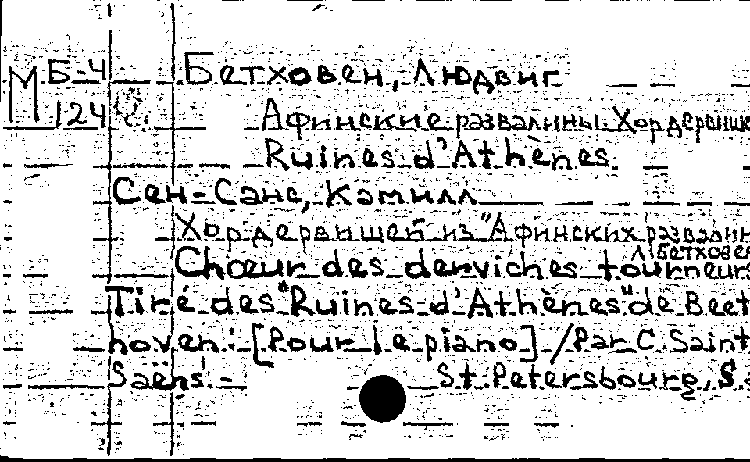 М Б-4 Бетховен, Людвиг
124 Афинские развалины. Хор дервиш
Ruines d'Athènes.
Сен-Санс, Камилл
Хор дервишей из "Афинских развалин
Л. Бетховен
Chœur des derviches tourneurs
Tiré des "Ruines d'Athènes" de Beet
hoven: [Pour le piano] / Par C. Saint
Saëns. - St. Petersbourg, S.